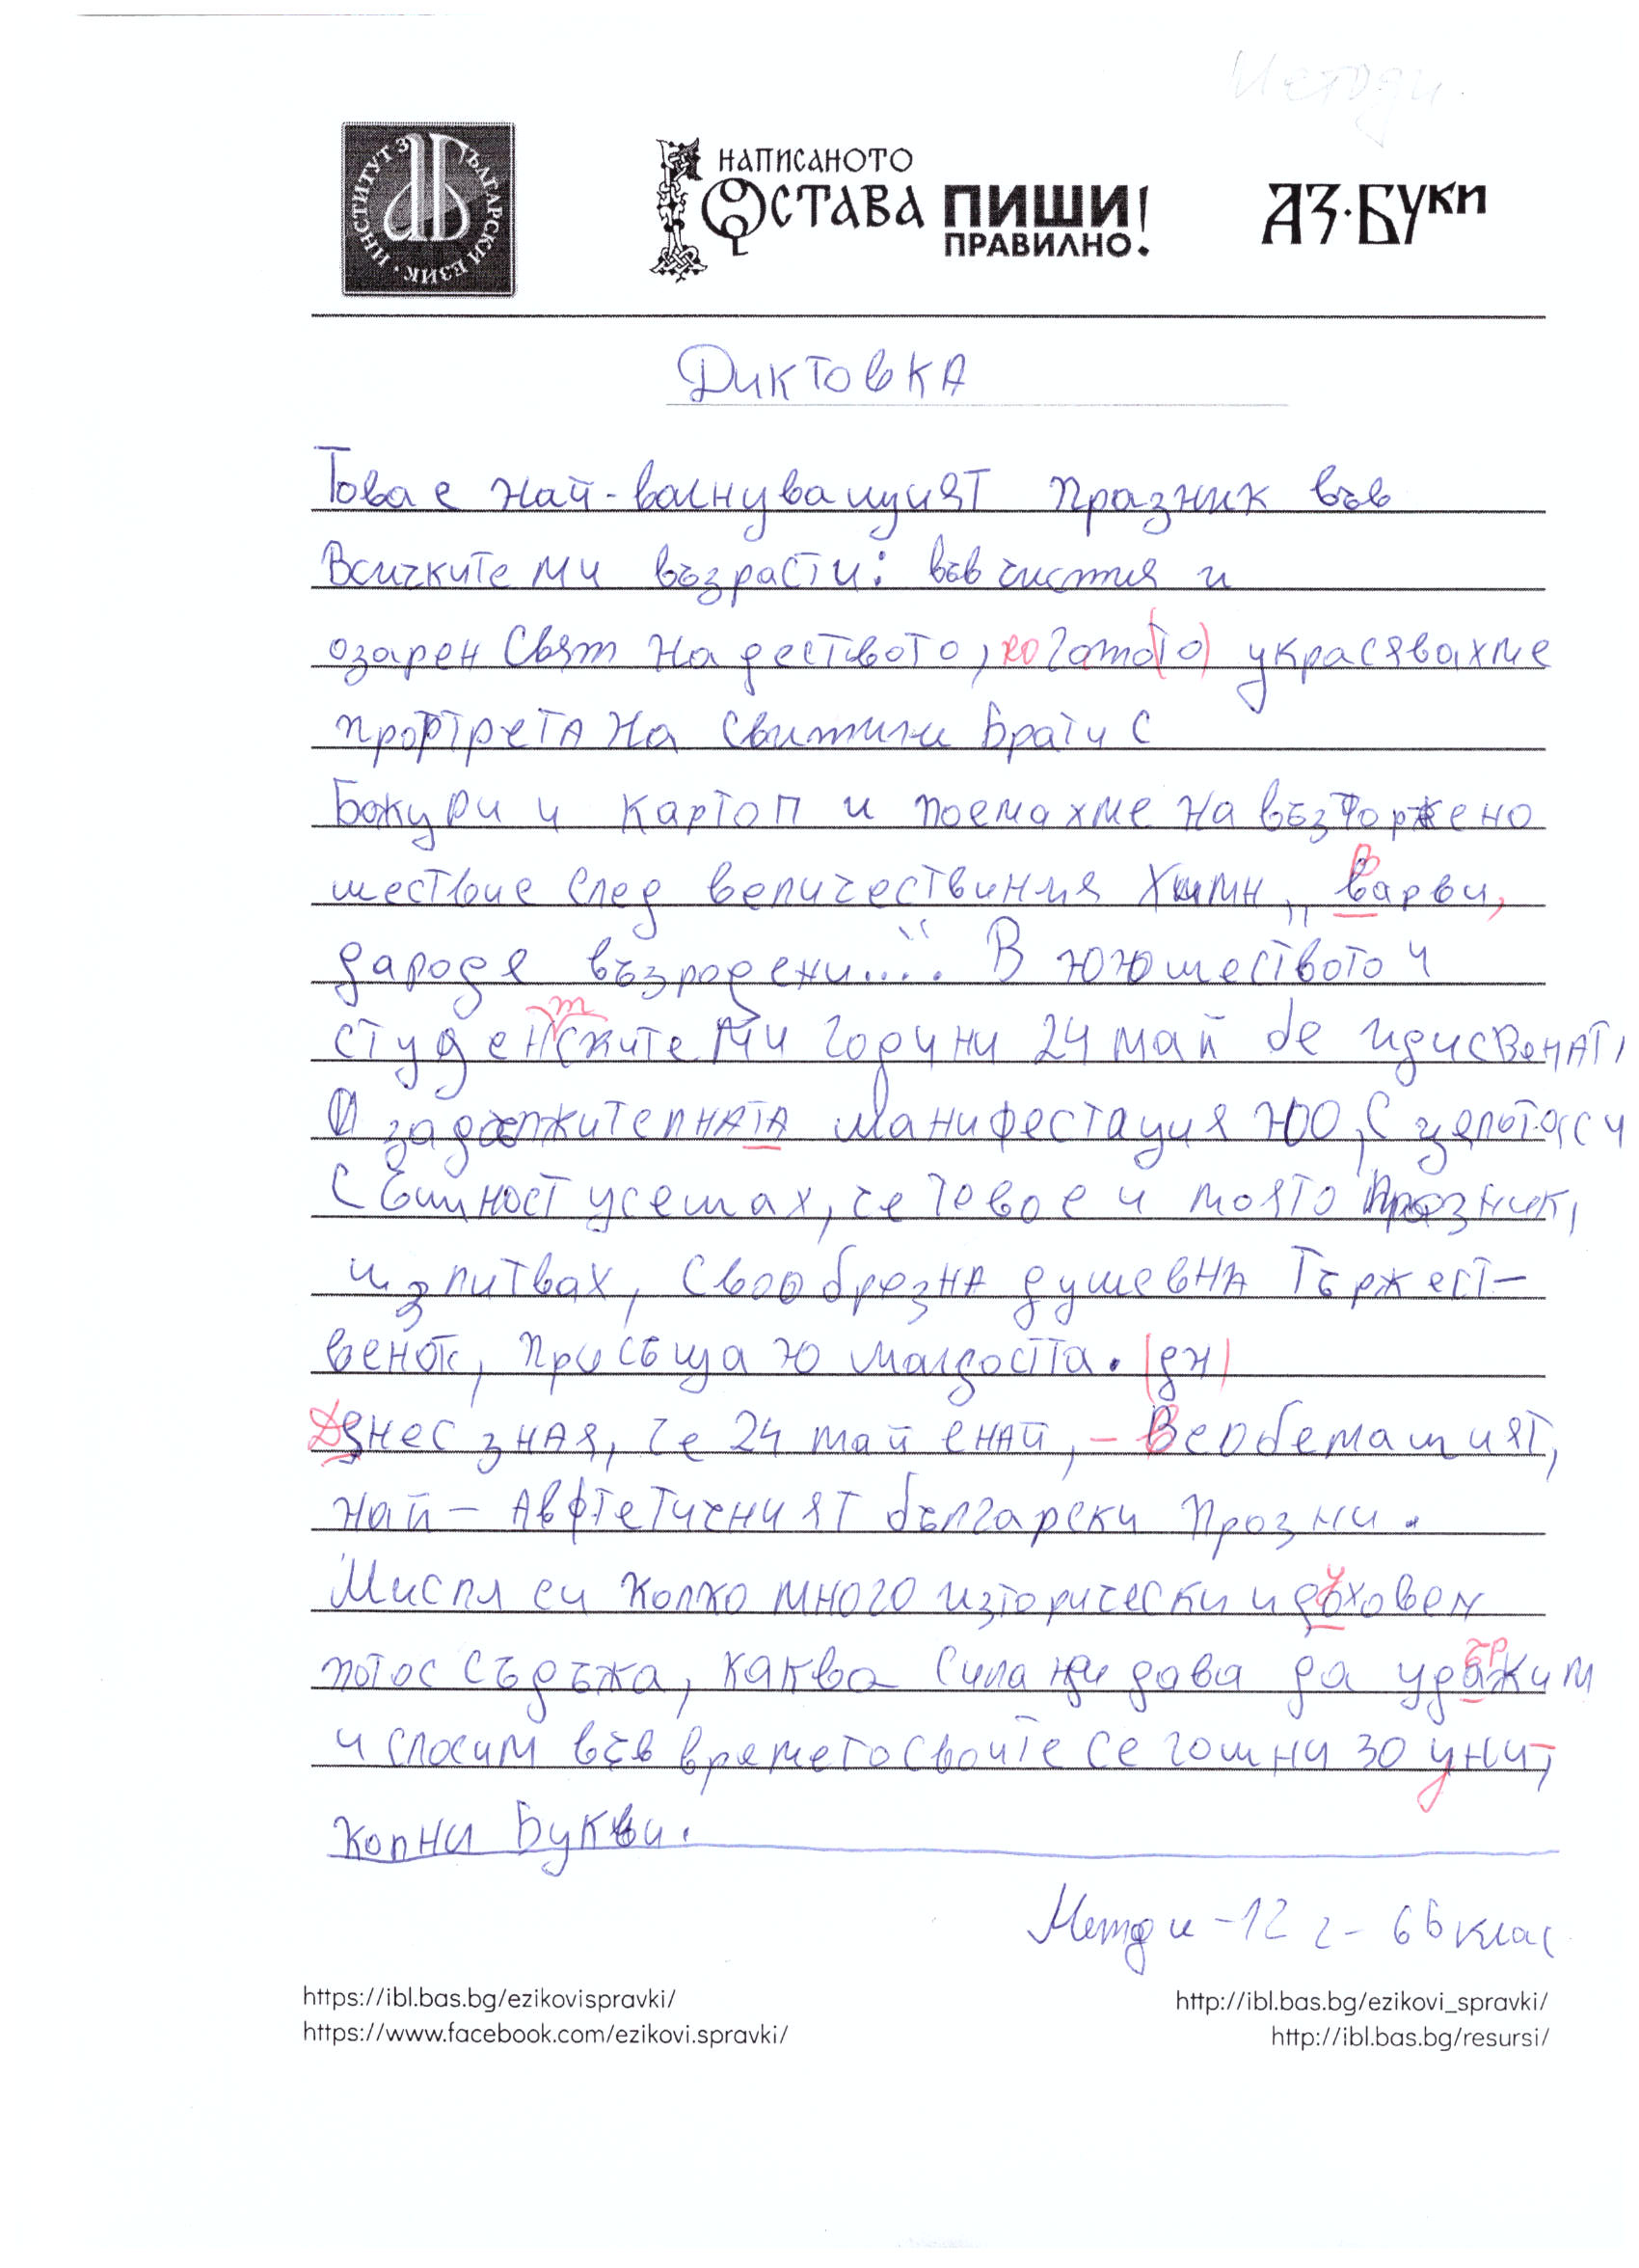 Методи.
ИНСТИТУТ ЗА БЪЛГАРСКИ ЕЗИК
НАПИСАНОТО
ОСТАВА ПИШИ!
ПРАВИЛНО!
АЗ·БУКИ
Диктовка
Това е най-валнуващият празник във
Всичките ми възрасти: във чистия и
озарен Свят на деството, когато(то) украсявахме
портрета на Свитити Брати С
Божури и картоп и поемахме на възторжено
шествие след величествиния Химн „варви,
дароде възродени....“ В юношеството и
студентските ми години 24 май бе
И задължителната манифестация но, С цялотоси
Същност усещах, че това е и моято празник,
изпитвах, Свообразна душевна Тържест-
веност, присъща ю малдостта. (дн)
Днес зная, че 24 май енай,- Веобемащият,
най- Авфтетичният български Празни.
Мисля си колко много изторически и духовен
потос съдъжа, каква сила ни дава да удържим
и спосим във времетосвоите сегошни 30 уни-,
кални Букви.
Метди -12 г- 6б клас
https://ibl.bas.bg/ezikovispravki/ http://ibl.bas.bg/ezikovi_spravki/
https://www.facebook.com/ezikovi.spravki/ http://ibl.bas.bg/resursi/